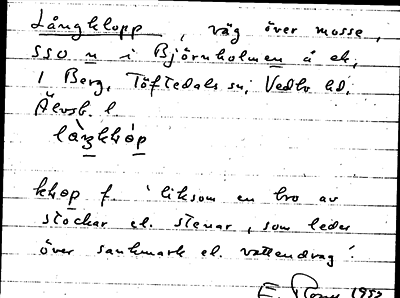 Långklopp, väg över mosse,
SSO n i Björnholmen å ek,
i Berg, Töftedals sn, Vedbo hd,
Älvsb. l.
låŋkhòp
khop f. 'liksom en bro av
stockar el. stenar, som leder
över sankmark el. vattendrag'.
E. 1952